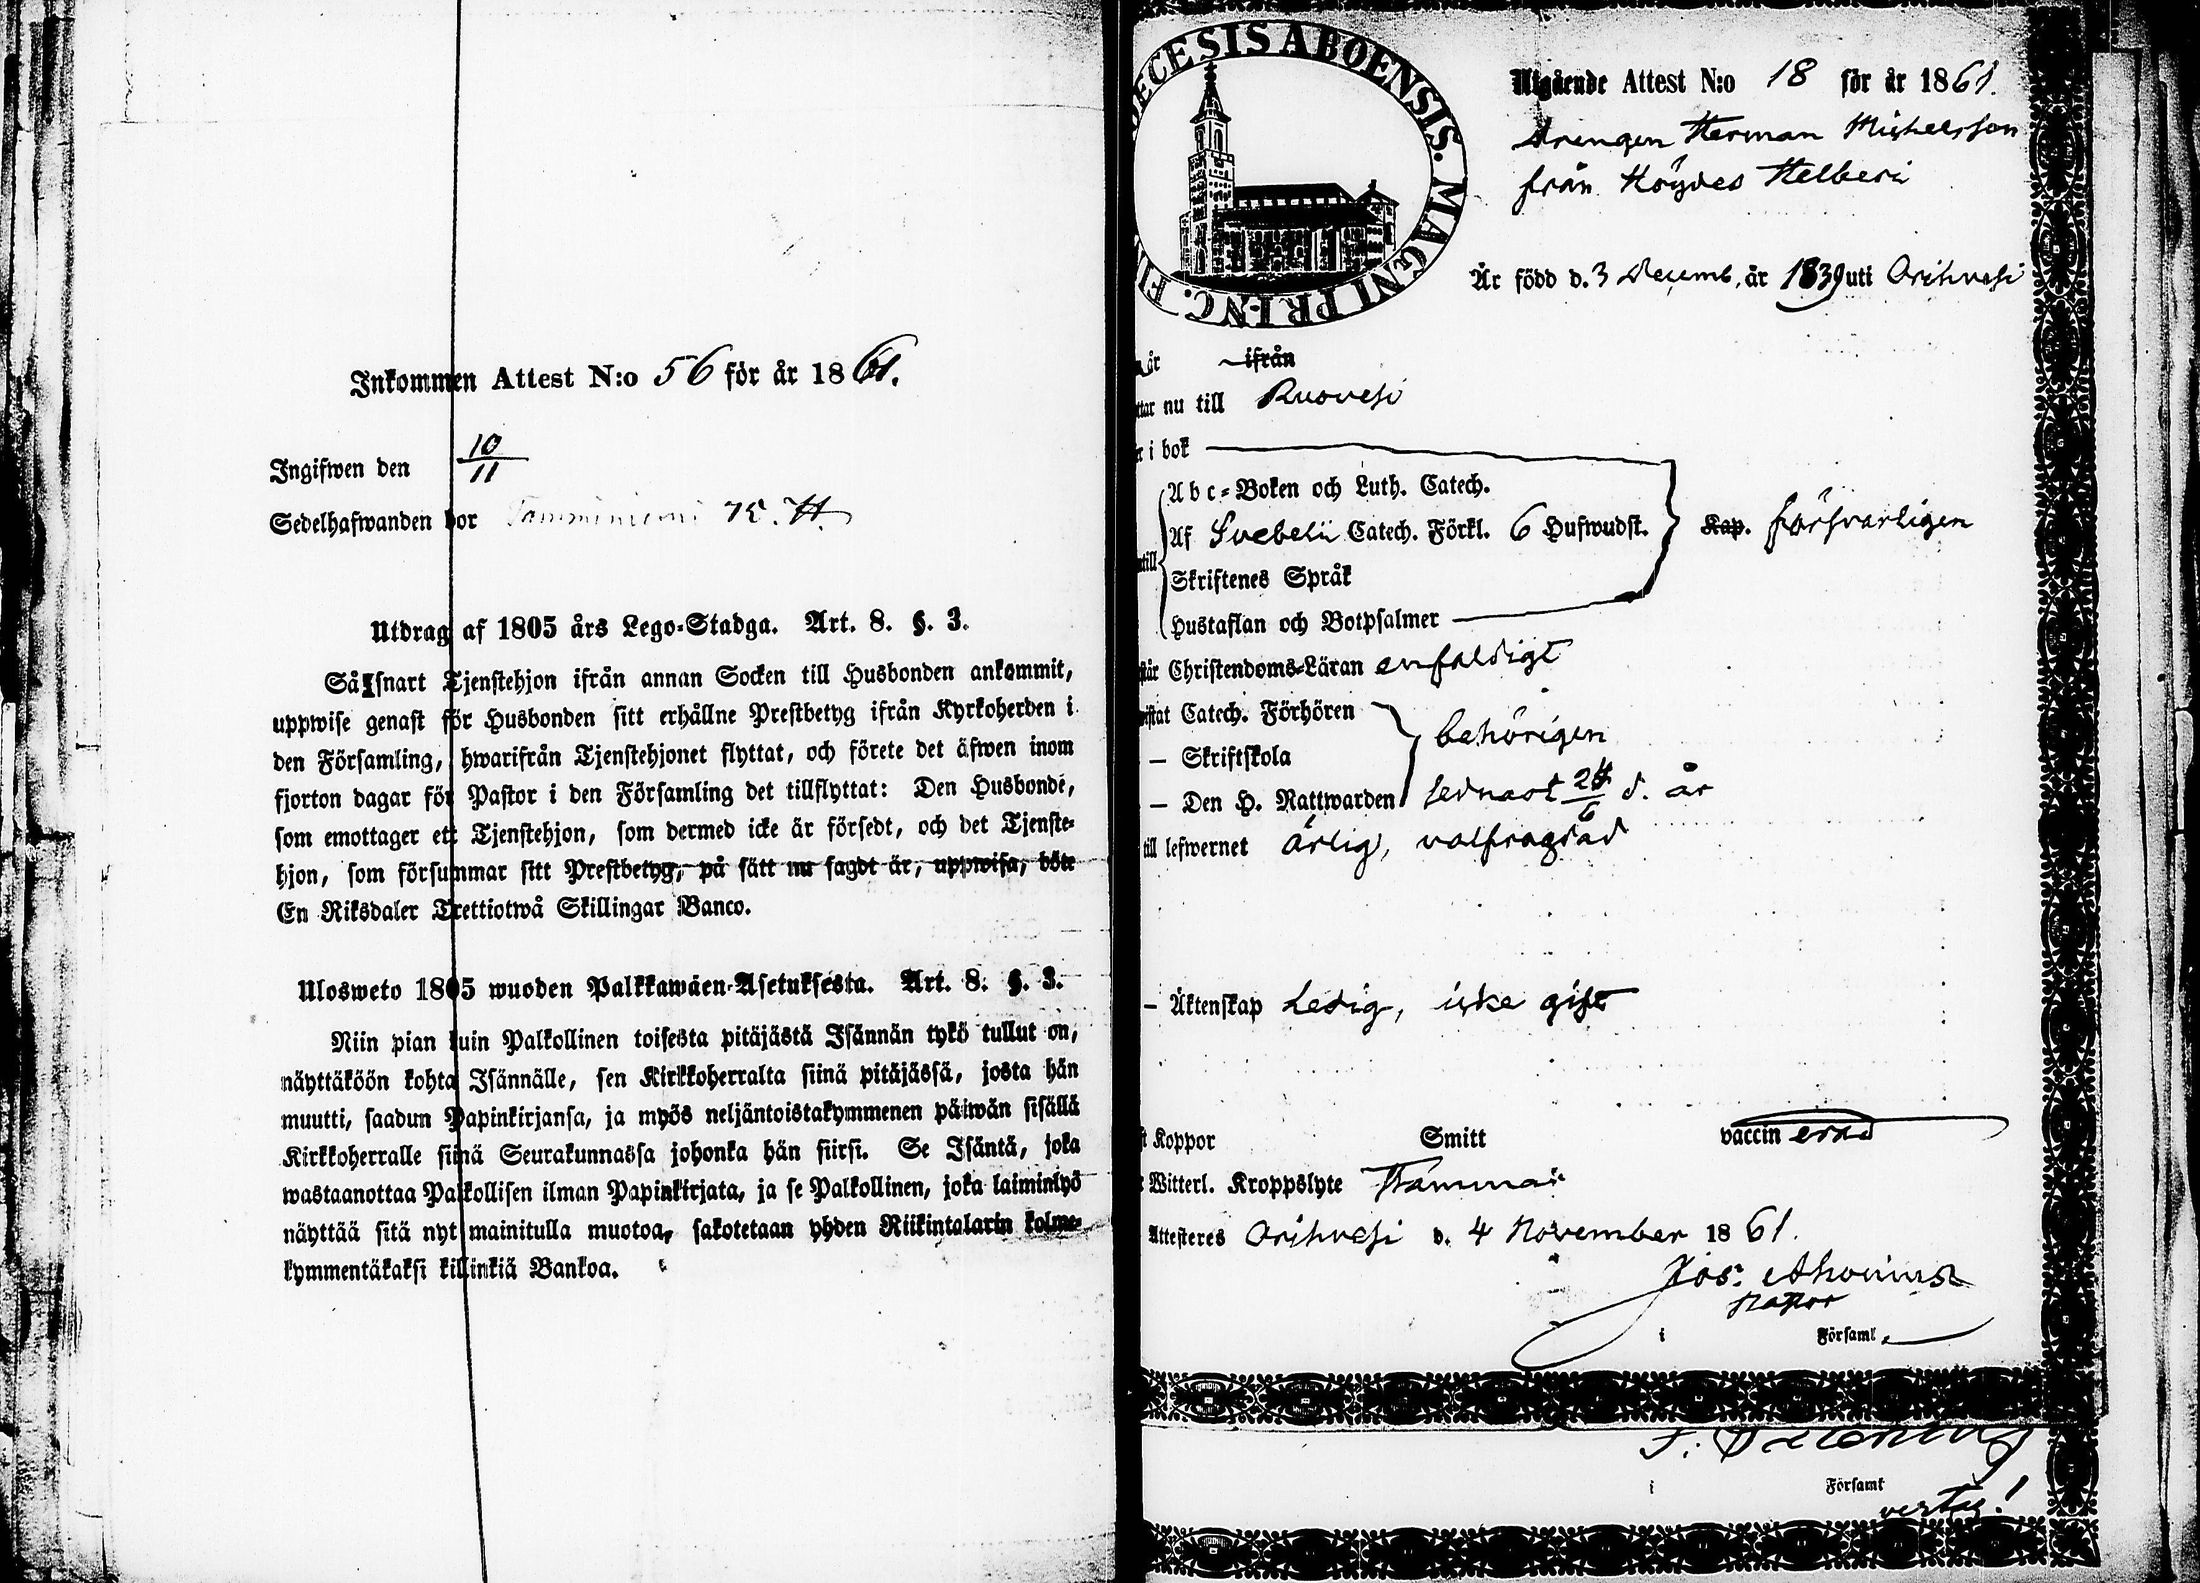 Inkommen Attest N:o 56 för år 1861.
Ingifwen den 10/11
Sedelhafwanden bor
Utdrag af 1805 års Lego-Stadga. Art. 8. §. 3.
Så snart Tjenstehjon ifrån annan Socken till Husbonden ankommit,
uppwise genast för Husbonden sitt erhållne Prestbetyg ifrån Kyrkoherden i
den Församling, hwarifrån Tjenstehjonet flyttat, och förete det äfwen inom
fjorton dagar för Pastor i den Församling det tillflyttat: Den Husbonde,
som emottager ett Tjenstehjon, som dermed icke är försedt, och det Tjenste-
hjon, som försummar sitt Prestbetyg, på sätt nu sagdt är, uppwisa, böte
En Riksdaler Trettiotwå Skillingar Banco.
Ulosweto 1805 wuoden Palkkawäen-Asetuksesta. Art. 8. §. 3.
Niin pian kuin Palkollinen toisesta pitäjästä Isännän tykö tullut on,
näyttäköön kohta Isännälle, sen Kirkkoherralta siinä pitäjässä, josta hän
muutti, saadun Papinkirjansa, ja myös neljäntoistakymmenen päiwän sisällä
Kirkkoherralle siinä Seurakunnassa johonka hän siirsi. Se Isäntä, joka
wastaanottaa Palkollisen ilman Papinkirjata, ja se Palkollinen, joka laiminlyö
näyttää sitä nyt mainitulla muotoa, sakotetaan yhden Riikintalarin kolme-
kymmentäkaksi killinkiä Bankoa.
ECESIS ABOENSIS. MAGNI PRINC. FI
Utgående Attest N:o 18 för år 1861.
Drengen Herman Michelsson
från Höydes Helberi
Är född d. 3 Decemb. år 1839 uti Orihvesi
år ifrån
nu till Ruovesi
i bok
Abc-Boken och Luth. Catech.
Af Svebelii Catech. Förkl. 6 Hufwudst. Kap. försvarligen
Skriftenes Språk
Hustaflan och Botpsalmer
Christendoms-Läran enfaldigt
Catech. Förhören
behörigen
— Skriftskola
— Den H. Nattwarden sednast d. år
till lefwernet ärlig, välfrägdad
— Äktenskap Ledig, icke gift
Koppor Smitt vaccin erad
Witterl. Kroppslyte Stammar
Attesteres Orihvesi d. 4 November 1861.
Jos.
Pastor
i Församl.
i Församl